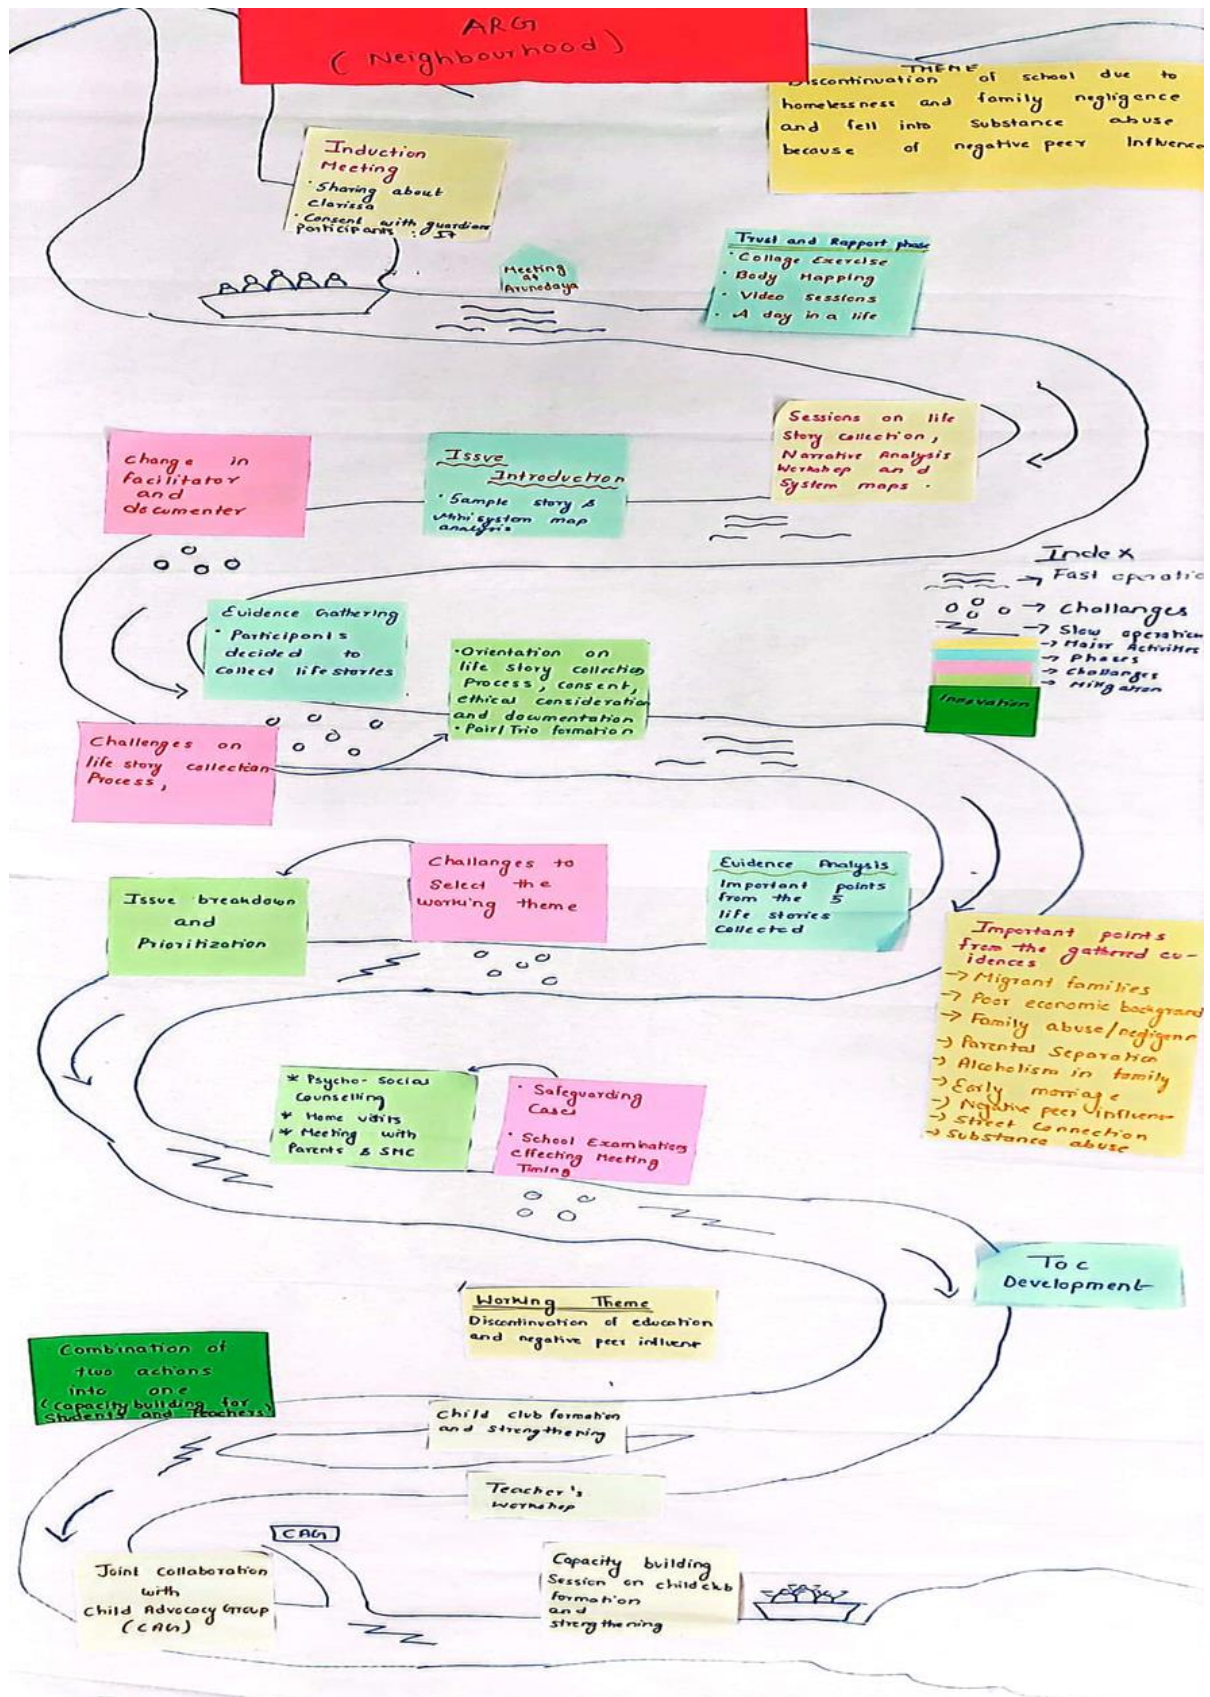 ARG
( Neighbourhood )
THEME
Discontinuation of school due to
homelessness and family negligence
and fell into Substance abuse
because of negative peer Influence
Induction
Meeting
• Sharing about
Clarissa
• Consent with guardians
Participants : 17
Meeting
at
Arunodaya
Trust and Rapport phase
• Collage Exercise
• Body Mapping
• Video sessions
• A day in a life
Sessions on life
Story collection,
Narrative Analysis
Workshop and
System maps.
Issue
Introduction
• Sample story &
Mini system map
analysis
Change in
facilitator
and
documenter
Index
→ Fast operatio
→ Challanges
→ Slow operation
→ Major Activities
→ Phases
→ Challanges
→ Mitigation
Innovation
Evidence Gathering
• Participants
decided to
collect life stories
• Orientation on
life story collection
Process, consent,
ethical consideration
and documentation
• Pair/Trio formation
Challenges on
life story collection
Process,
Challanges to
Select the
working theme
Issue breakdown
and
Prioritization
Evidence Analysis
Important points
from the 5
life stories
collected
Important points
from the gathered ev-
idences
→ Migrant families
→ Poor economic background
→ Family abuse/negligenc
→ Parental Separation
→ Alcoholism in family
→ Early marriage
→ Negative peer influent
→ Street Connection
→ Substance abuse
* Psycho-Social
Counselling
* Home visits
* Meeting with
Parents & SMC
• Safeguarding
Cases
• School Examination
effecting Meeting
Timing
ToC
Development
Working Theme
Discontinuation of education
and negative peer influent
Combination of
two actions
into one
(Capacity building for
Students and Teachers)
Child club formation
and strengthening
Teacher's
Workshop
CAG
Joint Collaboration
with
Child Advocacy Group
(CAG)
Capacity building
Session on child club
formation
and
strengthening